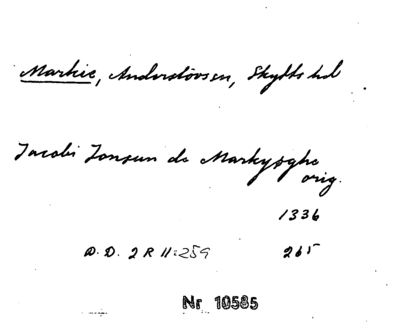 Markie, Anderstövsen, Skytts hd
Jacobi Jonsun de Markysghe
orig.
1336
D.D. 2 R 11:259 265
Nr 10585